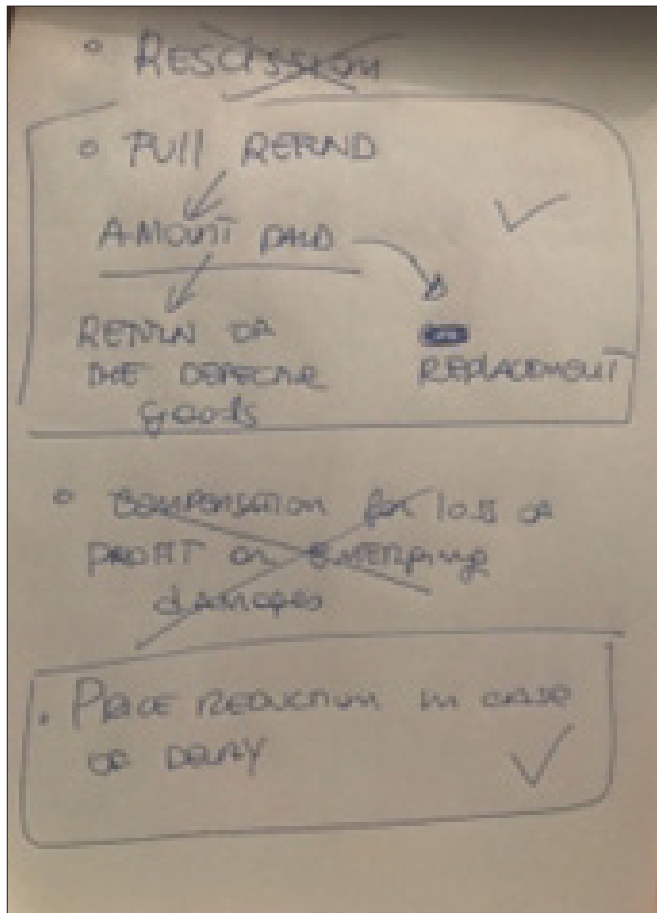 • RESCISSION
• FULL REFUND
AMOUNT PAID
RETURN OF
THE DEFECTIVE
goods
REPLACEMENT
• COMPENSATION for loss of
PROFIT or
damages
• PRICE REDUCTION IN CASE
OF DELAY